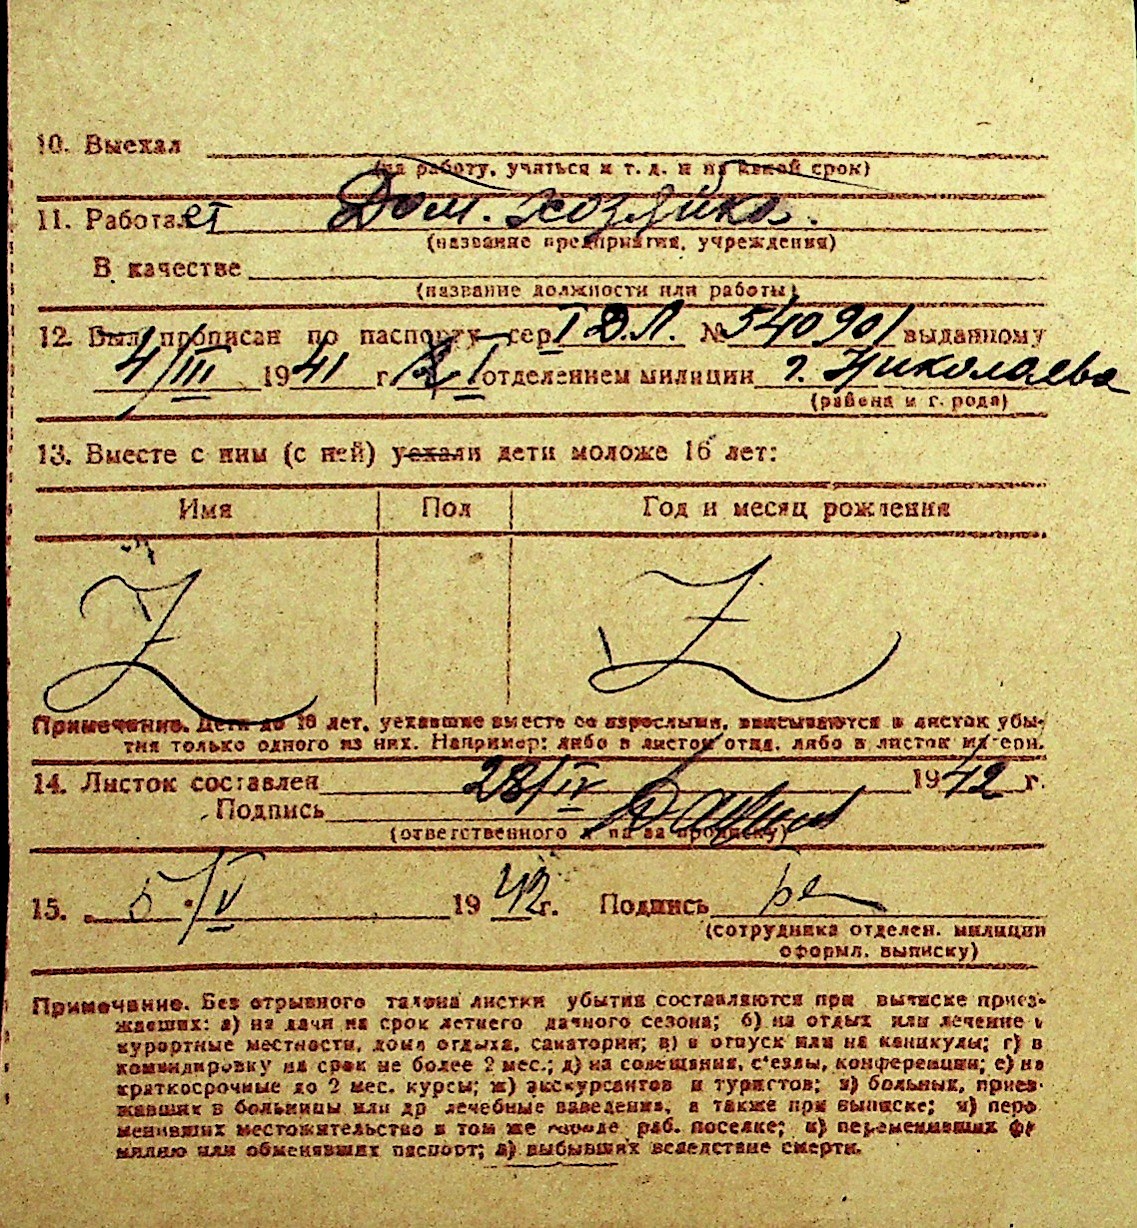 10. Выехал
(на работу, учиться и т. д. и на какой срок)
11. Работает Дом. хозяйка.
(название предприятия, учреждения)
В качестве
(название должности или работы)
12. Был прописан по паспорту сер I Д.Л. № 540901 выданному
4/III 1941 г. I отделением милиции г. Николаева
(района и г. рода)
13. Вместе с ним (с ней) уехали дети моложе 16 лет:
Имя Пол Год и месяц рождения
Z Z
Примечание. Дети до 16 лет, уехавшие вместе со взрослыми, вписываются в листок убы-
тия только одного из них. Например: либо в листок отца, либо в листок матери.
14. Листок составлен 28/IV 1942 г.
Подпись
(ответственного лица за прописку)
15. 5/V 1942 г. Подпись
(сотрудника отделен. милиции
оформл. выписку)
Примечание. Без отрывного талона листки убытия составляются при выписке приез-
жавших: а) на дачи на срок летнего дачного сезона; б) на отдых или лечение в
курортные местности, дома отдыха, санатории; в) в отпуск или на каникулы; г) в
командировку на срок не более 2 мес.; д) на совещания, с'езды, конференции; е) на
краткосрочные до 2 мес. курсы; ж) экскурсантов и туристов; з) больных, приез-
жавших в больницы или др лечебные заведения, а также при выписке; и) пере
менивших местожительство в том же городе раб. поселке; к) переменивших фа
милию или обменявших паспорт; л) выбывших вследствие смерти.